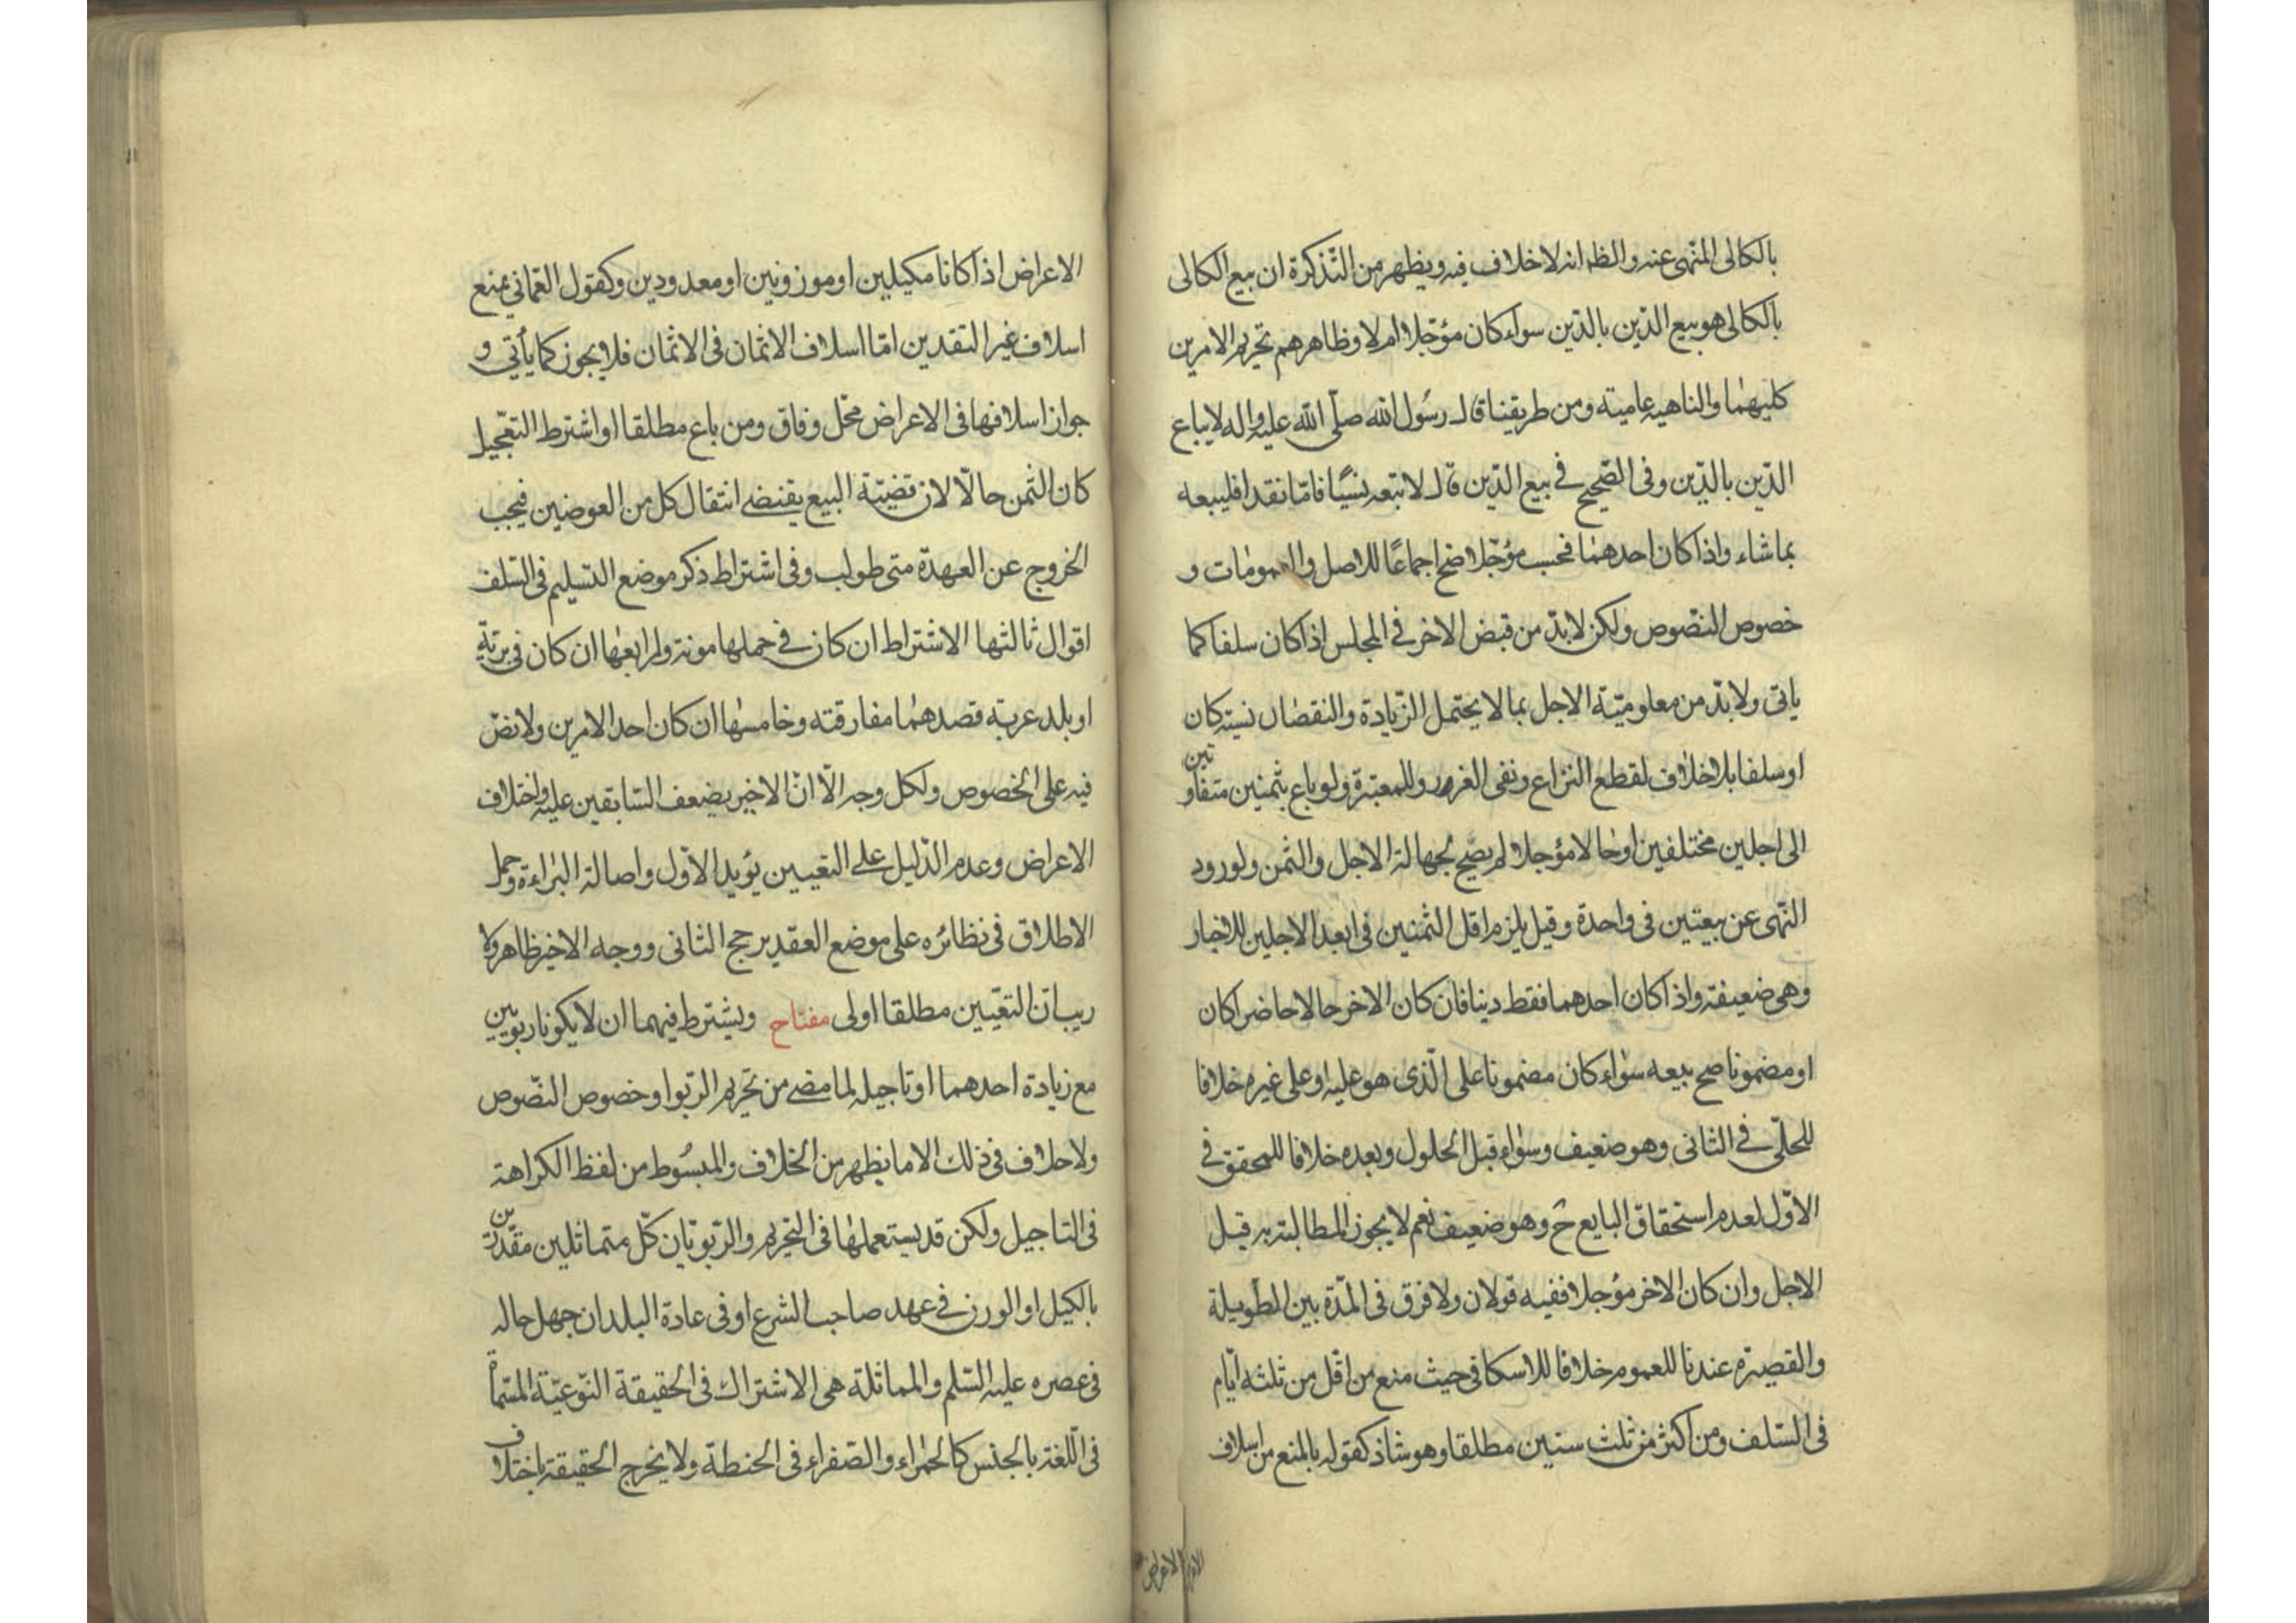 بالكالى المنهى عنه والظ انه لا خلاف فيه ويظهر من التذكرة ان بيع الكالى
بالكالى هو بيع الدّين بالدّين سواء كان مؤجّلا ام لا وظاهرهم تحريم الامرين
كليهما والناهيه عاميته ومن طريقنا قال رسول الله صلّى الله عليه واله لا يباع
الدّين بالدّين وفى الصّحيح فى بيع الدّين قال لا تبعه نسيًا فامّا نقدا فليبعه
بما شاء واذا كان احدهما فحسب مؤجّلا صح اجماعًا للاصل والعمومات و
خصوص النصّوص ولكن لا بدّ من قبض الاخر فى المجلس اذا كان سلفا كما
ياتى ولا بدّ من معلوميّة الاجل بما لا يحتمل الزّيادة والنقصان نسيئة كان
او سلفا بلا خلاف لقطع النزاع ونفى الغرر وللمعتبرة ولو باع بثمنين متفاوتين
الى اجلين مختلفين او حالا مؤجلا لم يصّح لجهالة الاجل والثمن ولورود
النّهى عن بيعتين فى واحدة وقيل يلزم اقل الثمنين فى ابعد الاجلين للاخبار
وهى ضعيفة واذا كان احدهما فقط دينا فان كان الاخر حالا حاضرا كان
او مضمونا صح بيعه سواء كان مضمونا على الّذى هو عليه او على غيره خلافا
للحلّى فى الثانى وهو ضعيف وسواء قبل الحلول وبعده خلافا للمحقق فى
الاوّل لعدم استحقاق البايع ح وهو ضعيف نعم لا يجوز المطالبة به قبل
الاجل وان كان الاخر مؤجلا ففيه قولان ولا فرق فى المدّة بين الطويلة
والقصيرة عندنا للعموم خلافا للاسكافى حيث منع من اقل من ثلثه ايّام
فى السّلف ومن اكثر من ثلث سنين مطلقا وهو شاذ كقوله بالمنع من اسلاف
الاعراض اذا كانا مكيلين او موزونين او معدودين وكقول العّمانى بمنع
اسلاف غير النقدين امّا اسلاف الاثمان فى الاثمان فلا يجوز كما يأتى و
جواز اسلافها فى الاعراض محّل وفاق ومن باع مطلقا او اشترط التعجيل
كان الثمن حالّا لان قضيّة البيع يقتضى انتقال كل من العوضين فيجب
الخروج عن العهدة متى طولب وفى اشتراط ذكر موضع التسليم فى السّلف
اقوال ثالثها الاشتراط ان كان فى حملها مونة ورابعها ان كان فى بريّة
او بلد غربة قصدهما مفارقته وخامسها ان كان احد الامرين ولا نصّ
فيه على الخصوص ولكل وجه الّا انّ الاخير يضعف السّابقين عليه واختلاف
الاعراض وعدم الدّليل على التعيين يؤيد الاوّل واصالة البراءة وحمل
الاطلاق فى نظائره على موضع العقد يرجح الثانى ووجه الاخير ظاهر ولا
ريب انّ التعيّين مطلقا اولى مفتاح ويشترط فيهما ان لا يكونا ربويين
مع زيادة احدهما او تاجيله لما مضى من تحريم الرّبوا وخصوص النصّوص
ولا خلاف فى ذلك الا ما يظهر من الخلاف والمبسوط من لفظ الكراهة
فى التاجيل ولكن قد يستعملها فى التّحريم والرّبويّان كلّ متماثلين مقدّرين
بالكيل او الوزن فى عهد صاحب الشرع او فى عادة البلد ان جهل حاله
فى عصره عليه السّلم والمماثلة هى الاشتراك فى الحقيقة النّوعيّة المسّماة
فى اللّغة بالجنس كالحمراء والصّفراء فى الحنطة ولا يخرج الحقيقة باختلاف
الاعراض